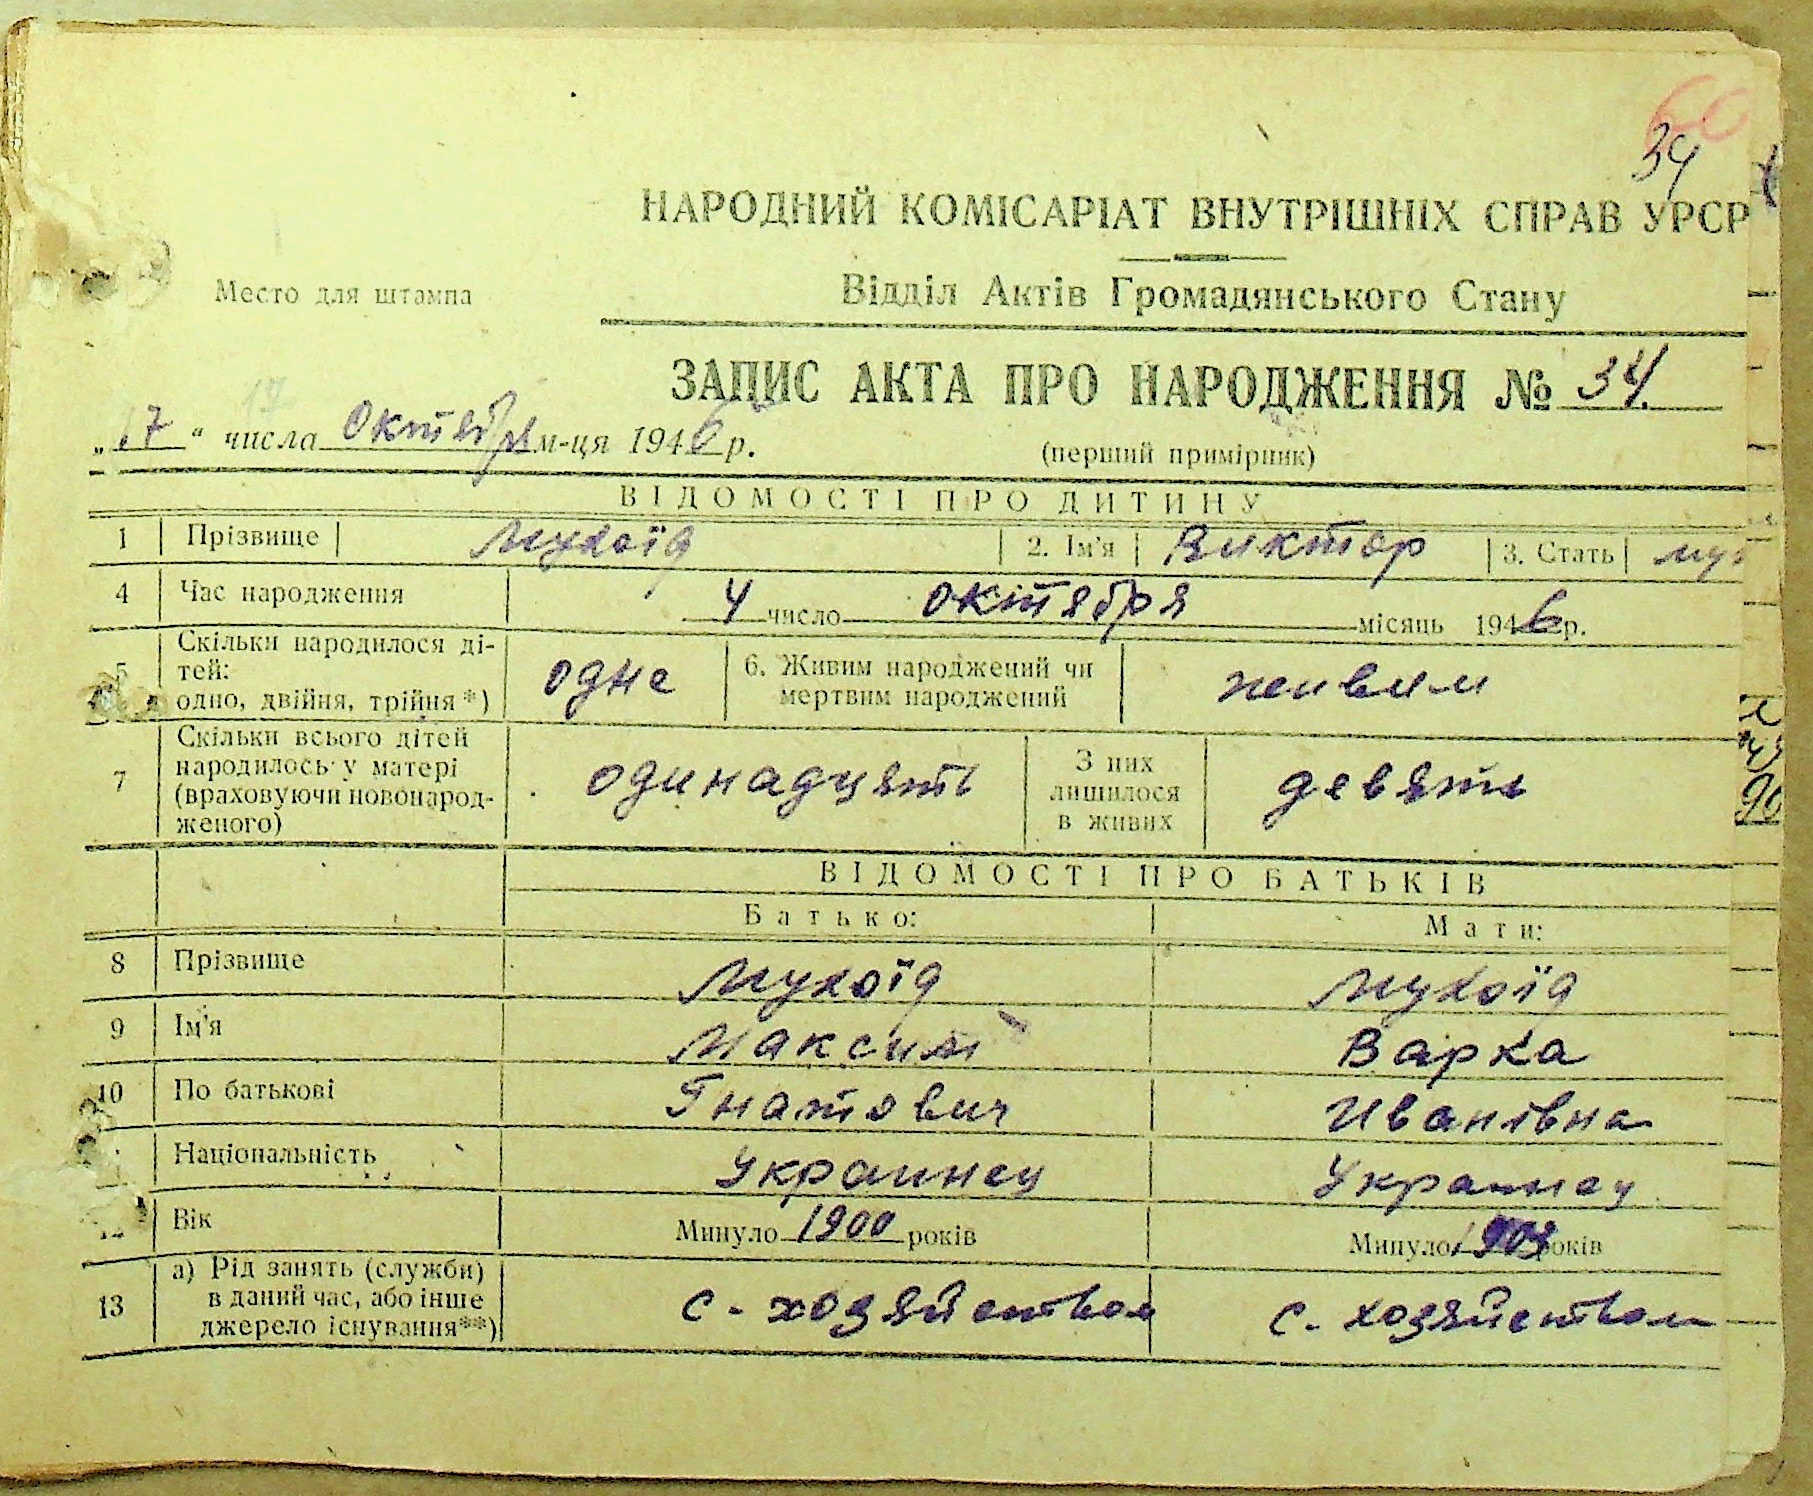 60
34
НАРОДНИЙ КОМІСАРІАТ ВНУТРІШНІХ СПРАВ УРСР
Место для штампа
Відділ Актів Громадянського Стану
ЗАПИС АКТА ПРО НАРОДЖЕННЯ № 34.
„17“ числа Октября м-ця 1946 р.
(перший примірник)
ВІДОМОСТІ ПРО ДИТИНУ
1 Прізвище Мухоїд 2. Ім'я Виктор 3. Стать муж
4 Час народження 4 число октября місяць 1946 р.
5 Скільки народилося ді-
тей:
одно, двійня, трійня*) одне
6. Живим народжений чи
мертвим народжений живим
7 Скільки всього дітей
народилось у матері
(враховуючи новонарод-
женого) одинадцять
З них
лишилося
в живих девять
ВІДОМОСТІ ПРО БАТЬКІВ
Батько: Мати:
8 Прізвище Мухоїд Мухоїд
9 Ім'я Максим Варка
10 По батькові Гнатович Иванівна
Національність Украинец Украинец
12 Вік Минуло 1900 років Минуло 1904 років
13 а) Рід занять (служби)
в даний час, або інше
джерело існування**) с-хозяйством с-хозяйством